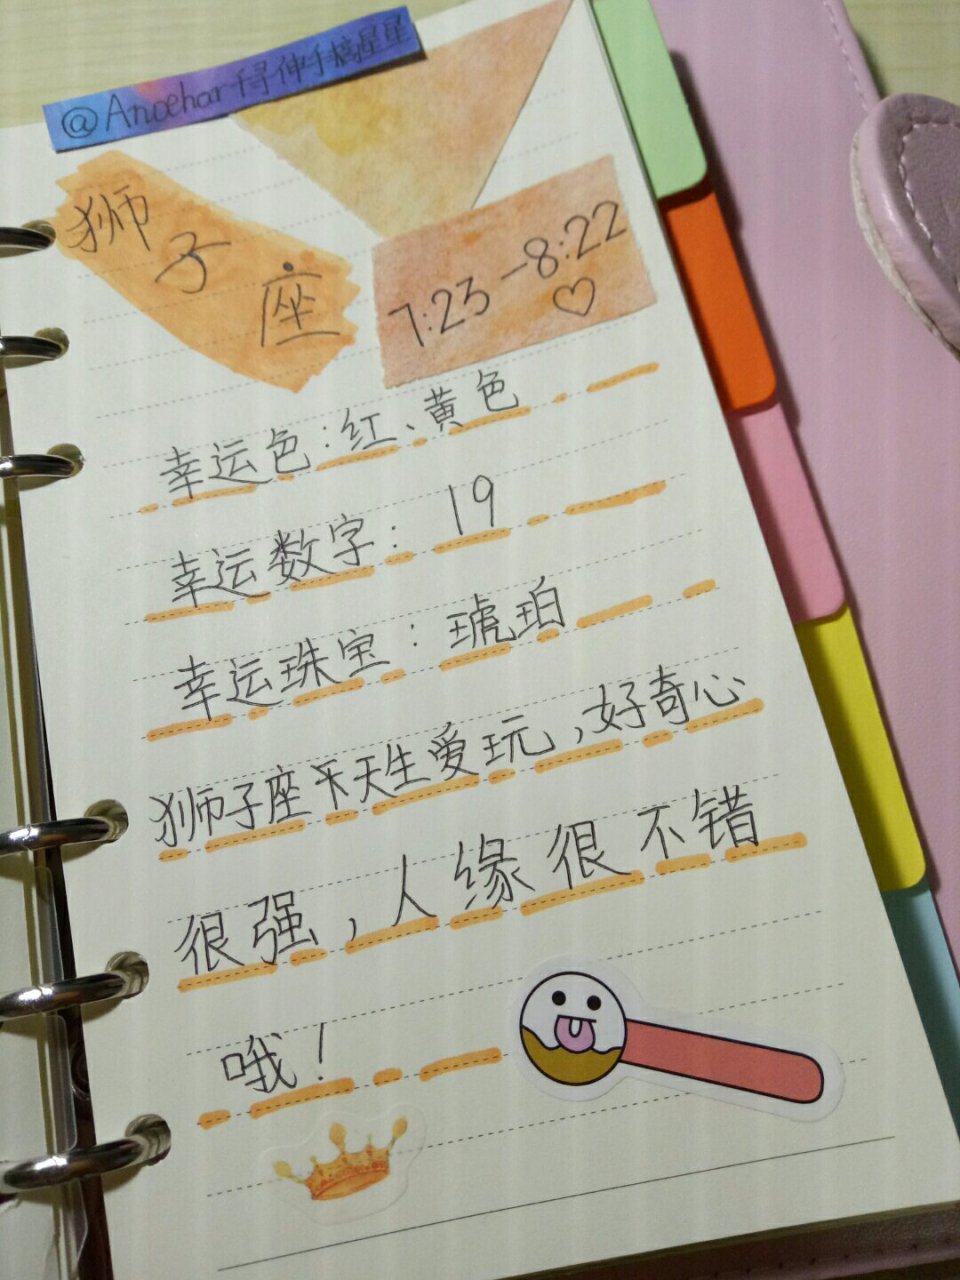 @Anoehar伸手摘星星
狮子座
7:23-8:22
幸运色:红、黄色
幸运数字: 19
幸运珠宝:琥珀
狮子座天生爱玩,好奇心
很强,人缘很不错
哦!